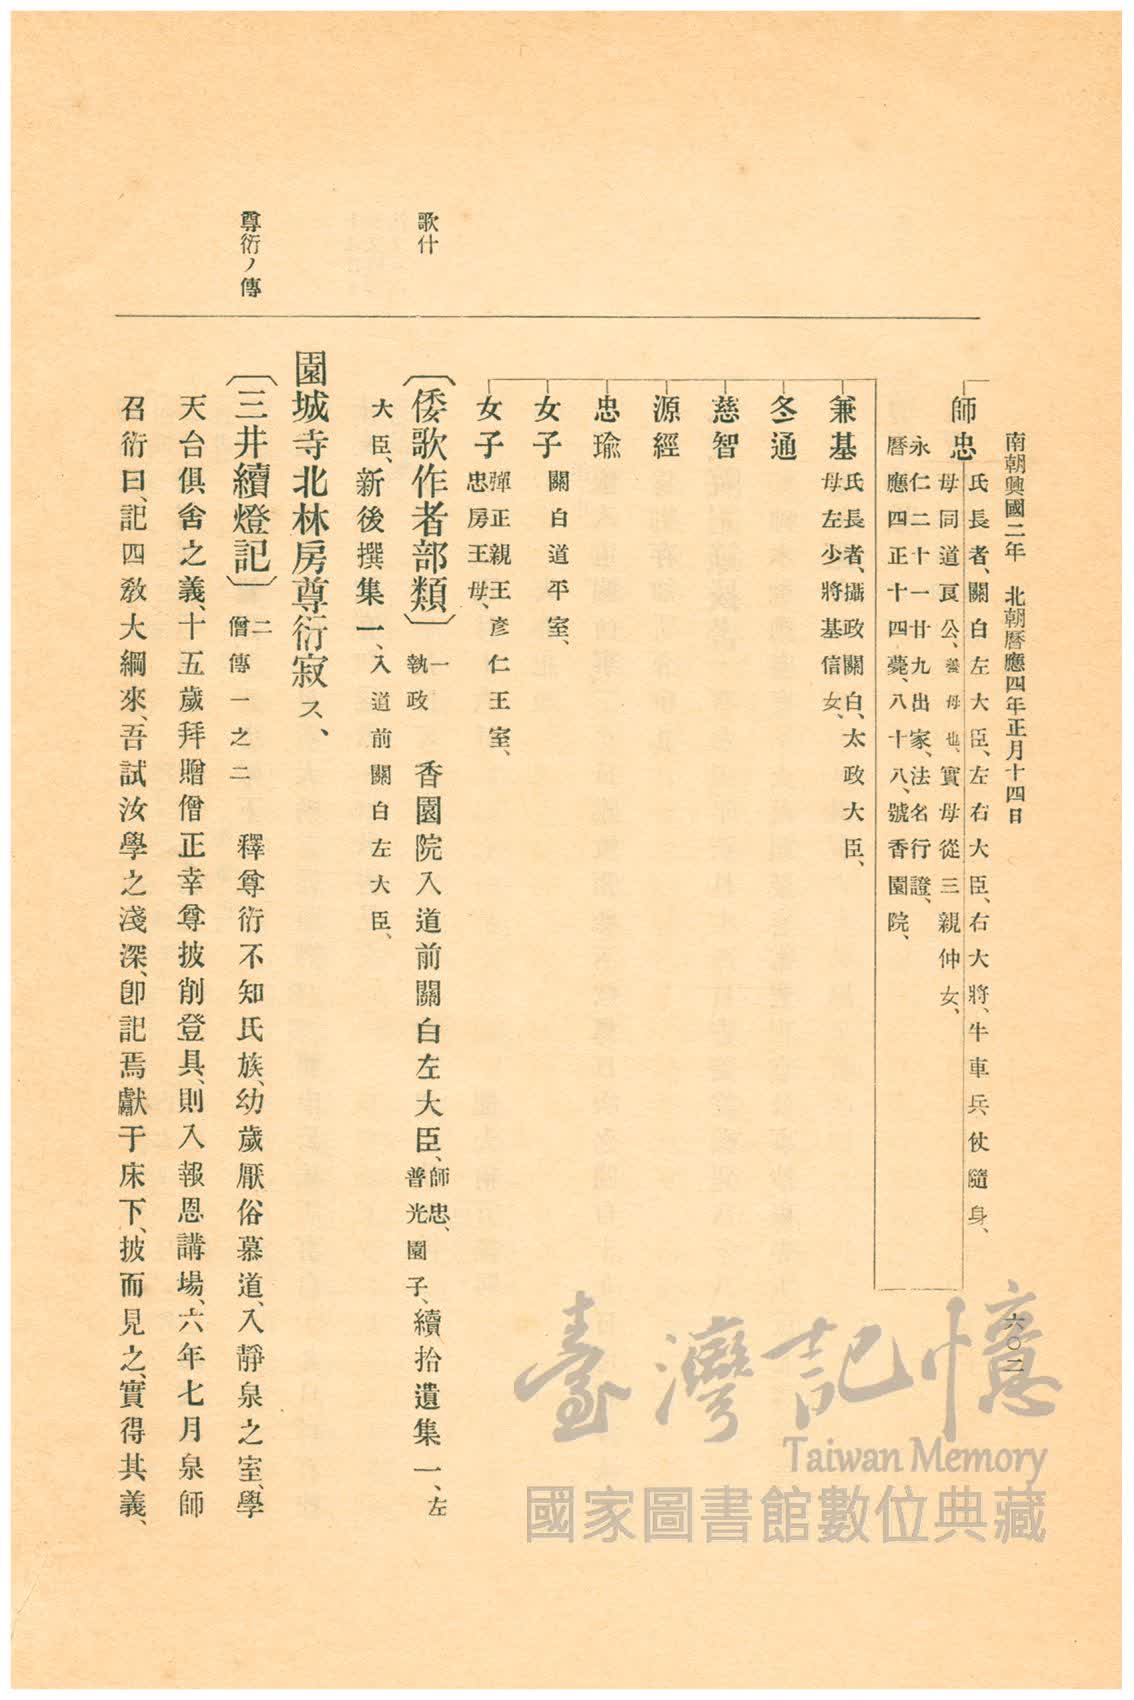 南朝興國二年　北朝曆應四年正月十四日
六〇二
師忠
氏長者、關白左大臣、左右大臣、右大將、牛車兵仗隨身、
母同道良公、養母也、實母從三親仲女、
永仁二十一廿九出家、法名行證、
曆應四正十四薨、八十八、號香園院、
兼基
氏長者、攝政關白、太政大臣、
母左少將基信女、
冬通
慈智
源經
忠瑜
女子
關白道平室、
女子
彈正親王彥仁王室、
忠房王母、
歌什
〔倭歌作者部類〕
一
執政
香園院入道前關白左大臣、
師忠、
普光園子、
續拾遺集一、左
大臣、新後撰集一、入道前關白左大臣、
園城寺北林房尊衍寂ス、
尊衍ノ傳
〔三井續燈記〕
二
僧傳一之二
釋尊衍不知氏族、幼歲厭俗慕道、入靜泉之室、學
天台俱舍之義、十五歲拜贈僧正幸尊披削登具、則入報恩講場、六年七月泉師
召衍曰、記四敎大綱來、吾試汝學之淺深、卽記焉獻于床下、披而見之、實得其義、
臺灣記憶
Taiwan Memory
國家圖書館數位典藏